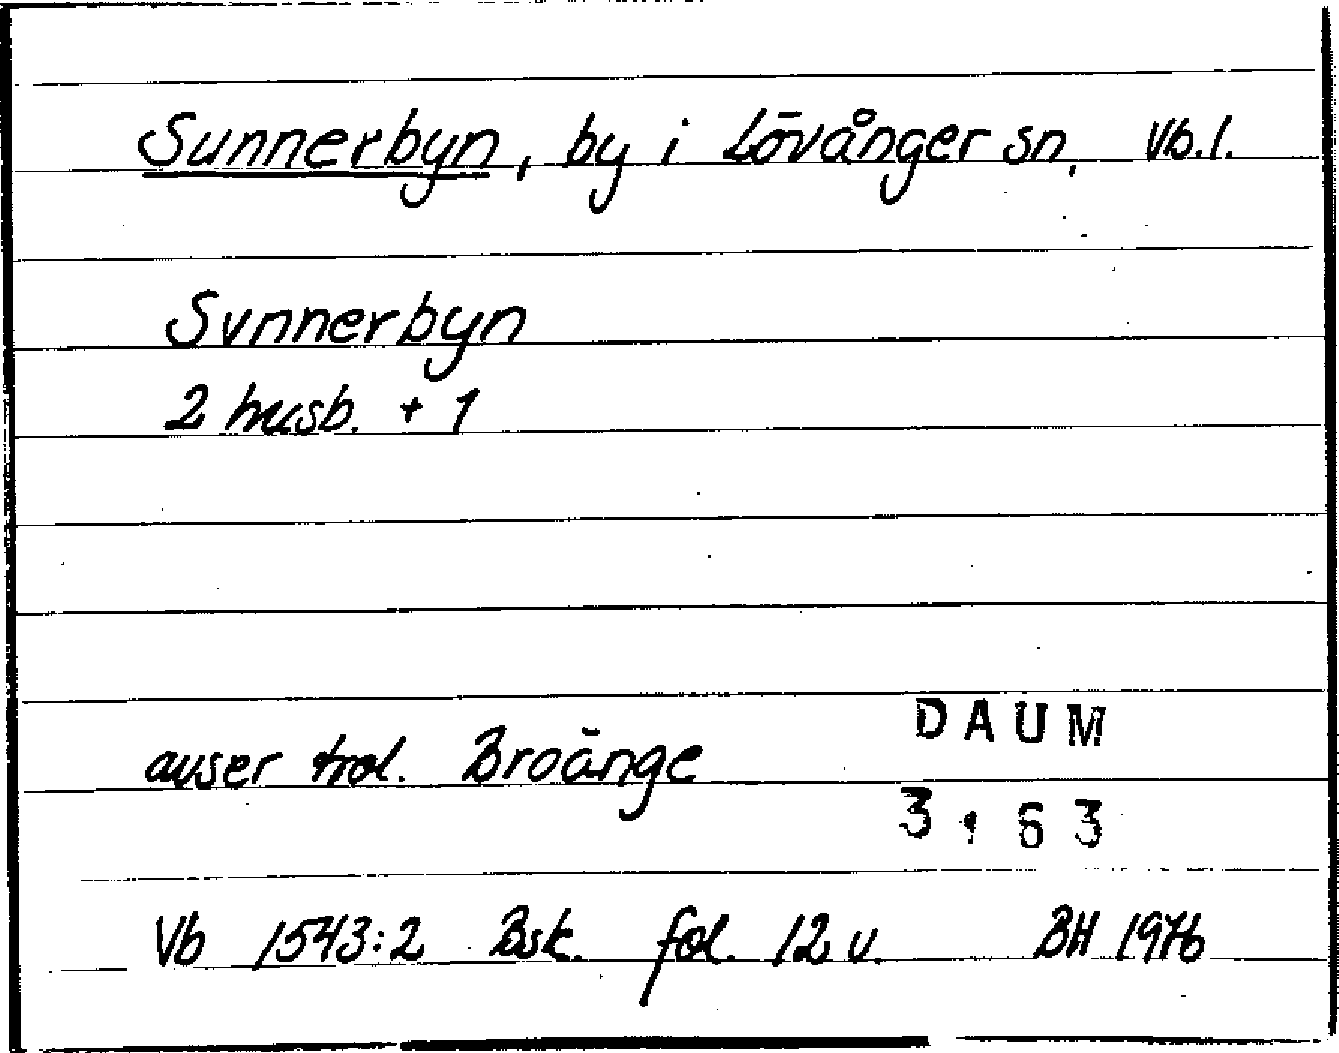 Sunnerbyn, by i Lövånger sn, Vb.l.
Svnnerbyn
2 husb. + 1
avser trol. Broänge
DAUM
3 : 63
Vb 1543:2 Bsk. fol. 12 v. BH 1976